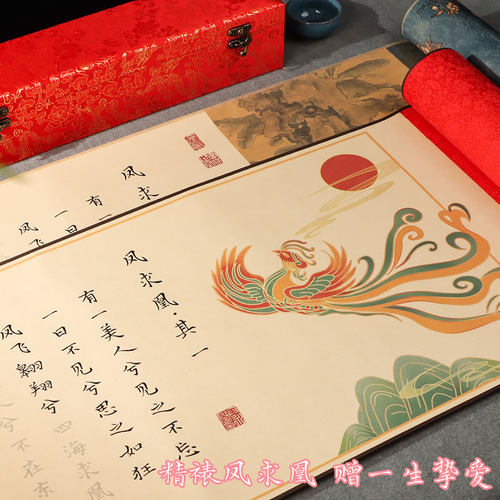 凤求
有一
一日
凤飞
凤求凰·其一
有一美人兮见之不忘
一日不见兮思之如狂
凤飞翱翔兮四海求凰
兮不在东
精裱凤求凰 赠一生挚爱